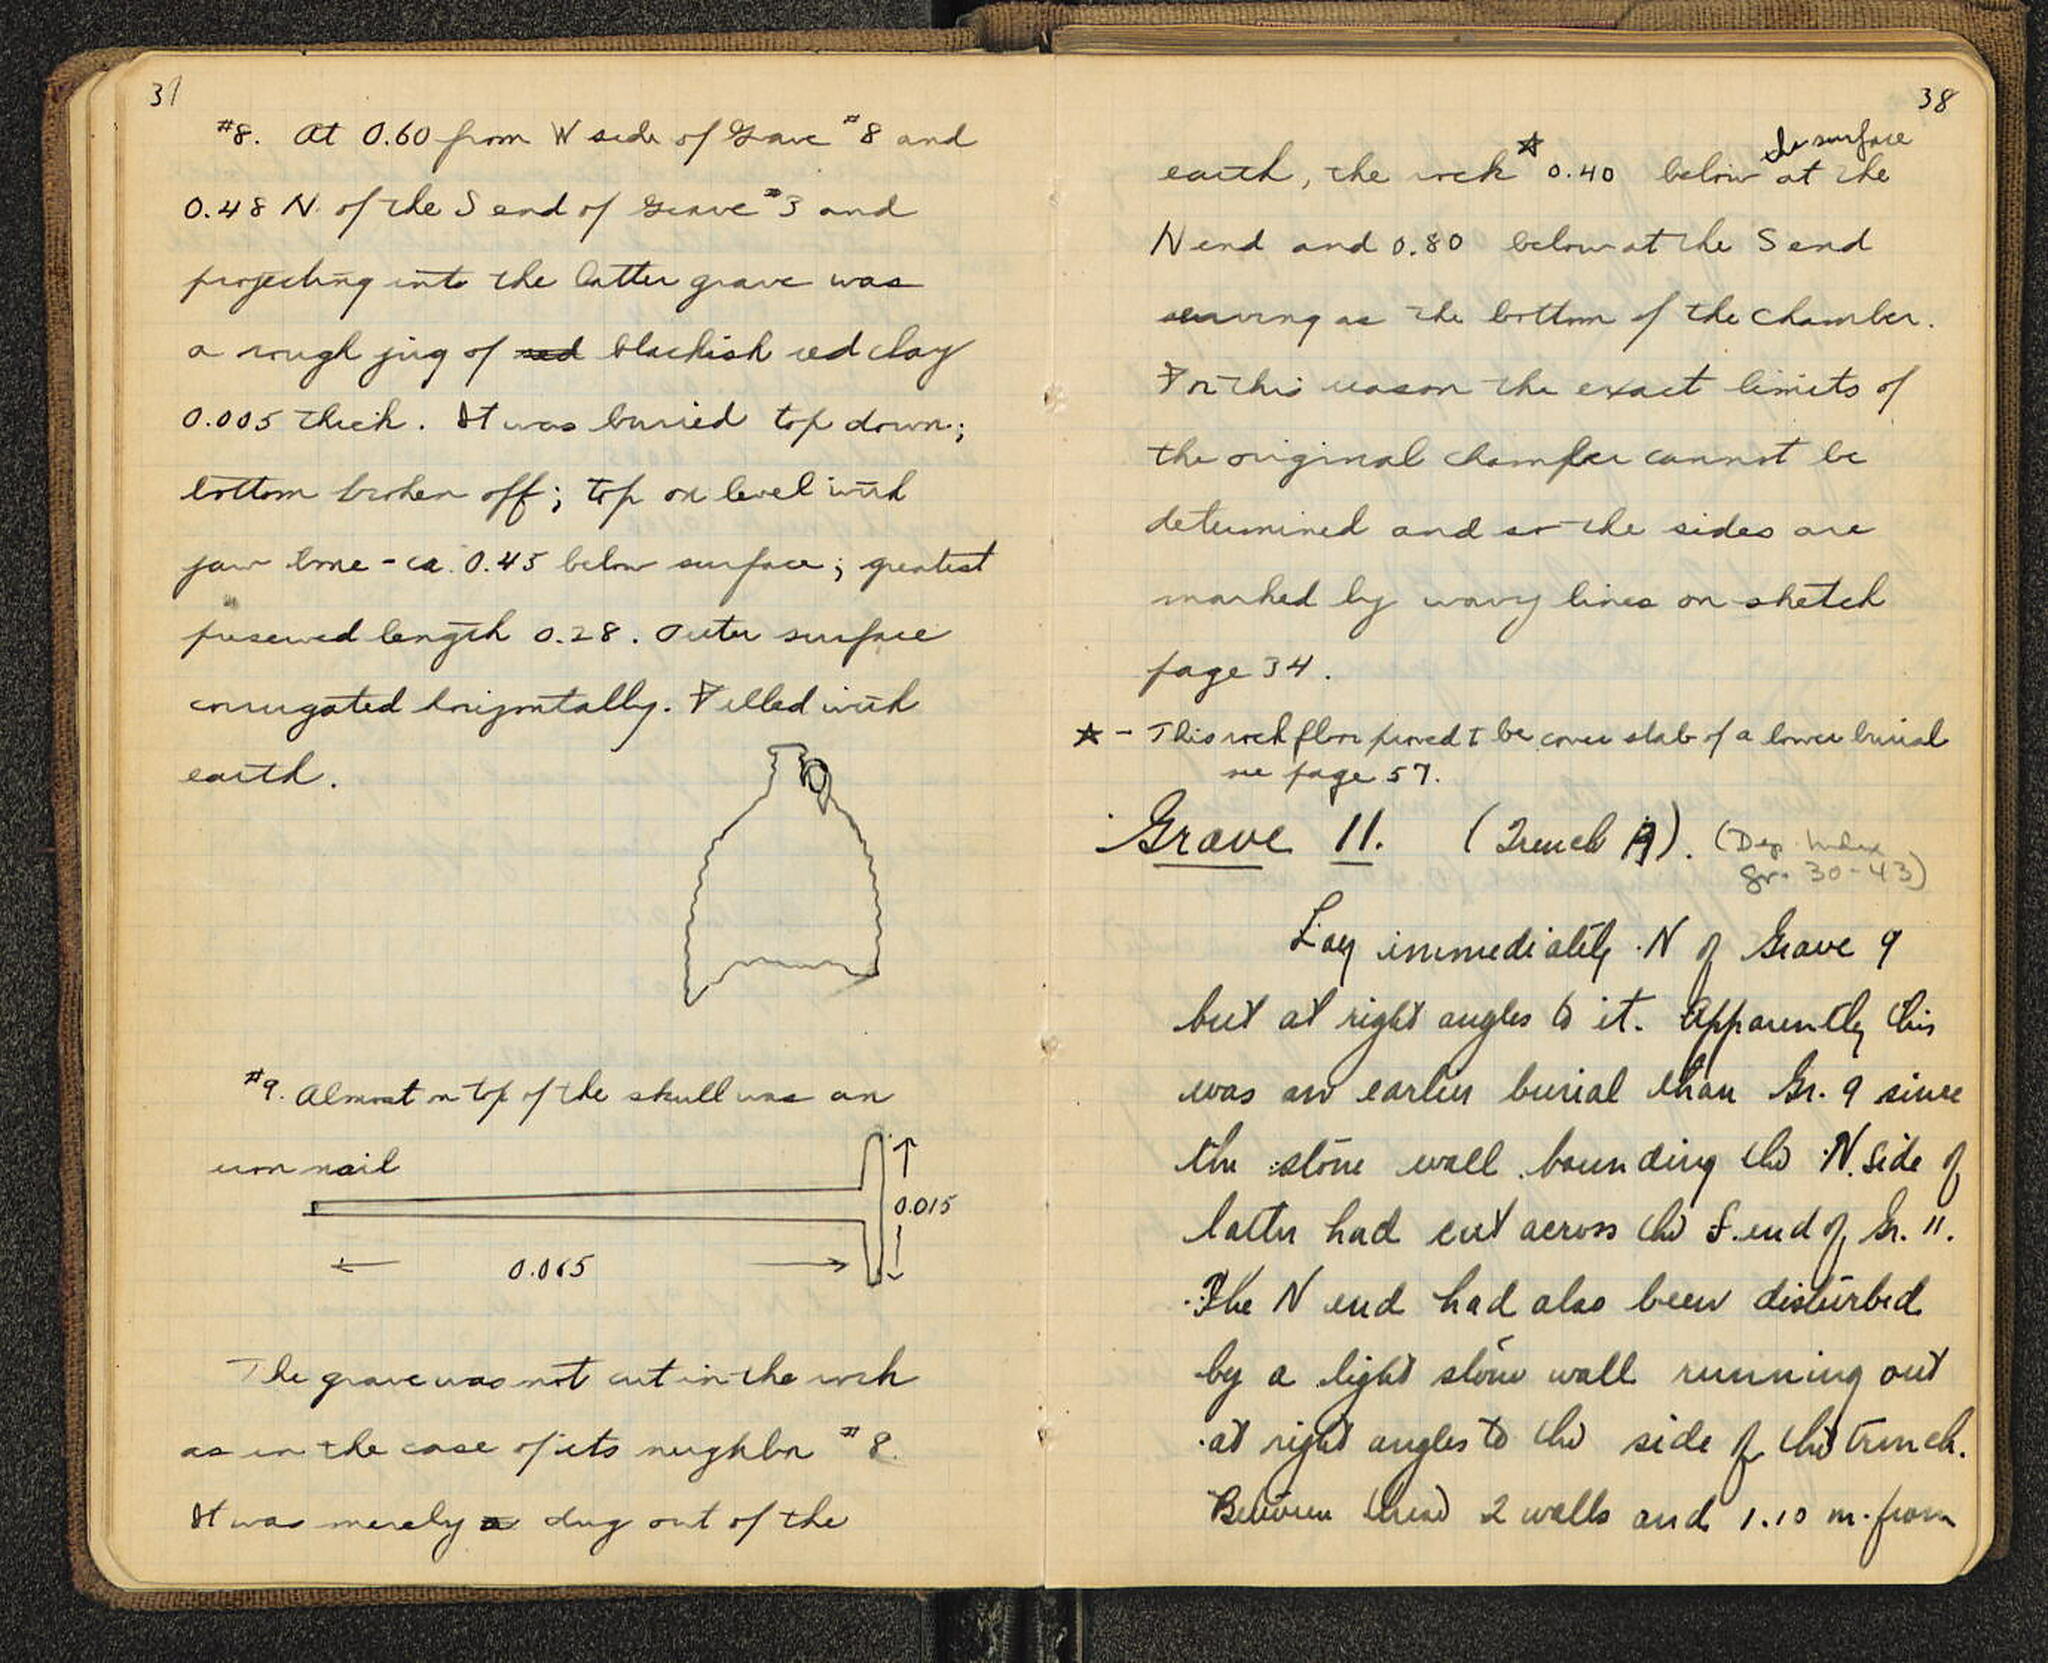 37
#8. At 0.60 from W side of Grave #8 and
0.48 N. of the S end of Grave #3 and
projecting into the latter grave was
a rough jug of red blackish red clay
0.005 thick. It was buried top down;
bottom broken off; top on level with
jaw bone - ca. 0.45 below surface; greatest
preserved length 0.28. Outer surface
corrugated horizontally. Filled with
earth.
#9. Almost on top of the skull was an
iron nail
0.015
0.065
The grave was not cut in the rock
as in the case of its neighbor #8.
It was merely a dug out of the
38
the surface
earth, the rock ☆ 0.40 below at the
N end and 0.80 below at the S end
serving as the bottom of the chamber.
For this reason the exact limits of
the original chamber cannot be
determined and so the sides are
marked by wavy lines on sketch
page 34.
☆ - This rock floor proved to be cover slab of a lower burial
see page 57.
Grave 11. (Trench A). (Dep. Index
Gr. 30-43)
Lay immediately N of Grave 9
but at right angles to it. Apparently this
was an earlier burial than Gr. 9 since
the stone wall bounding the N. side of
latter had cut across the S. end of Gr. 11.
The N end had also been disturbed
by a light stone wall running out
at right angles to the side of the trench.
Between these 2 walls and 1.10 m. from